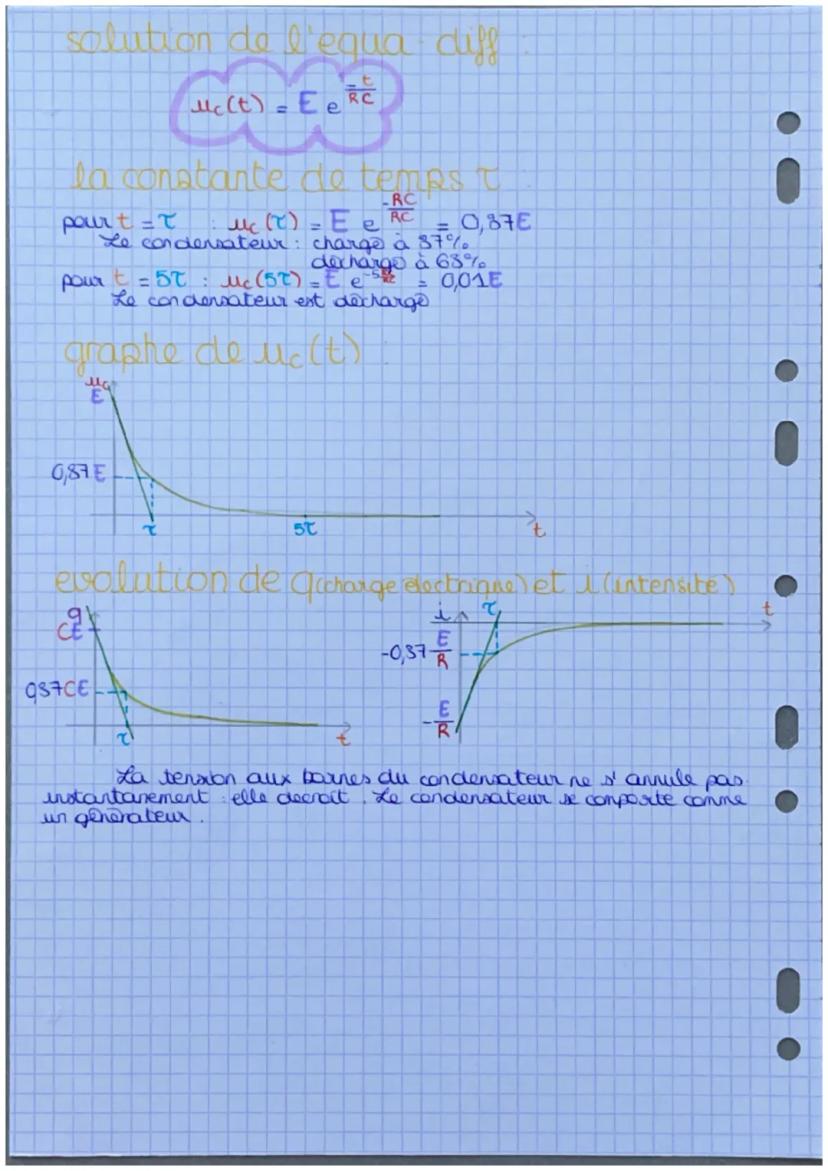 solution de l'equa diff :
uc(t) = E e^-t/RC
la constante de temps τ
pour t = τ : uc(τ) = E e^-RC/RC = 0,37E
Le condensateur : chargé à 37%
déchargé à 63%
pour t = 5τ : uc(5τ) = E e^-5RC/RC = 0,01E
Le condensateur est déchargé
graphe de uc(t) :
uc
E
0,37E
τ
5τ
t
evolution de q(charge électrique) et i (intensité)
q
CE
0,37CE
τ
t
i
τ
t
-0,37 E/R
-E/R
La tension aux bornes du condensateur ne s'annule pas
instantanement : elle decroit. Le condensateur se comporte comme
un générateur.